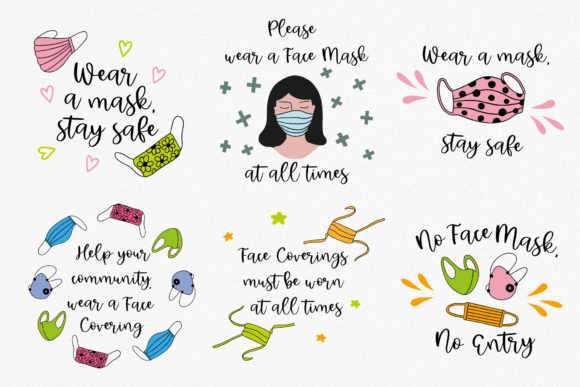 Wear
a mask,
stay safe
Please
wear a Face Mask
at all times
Wear a mask,
stay safe
Help your
community,
wear a Face
Covering
Face Coverings
must be worn
at all times
No Face Mask,
No Entry